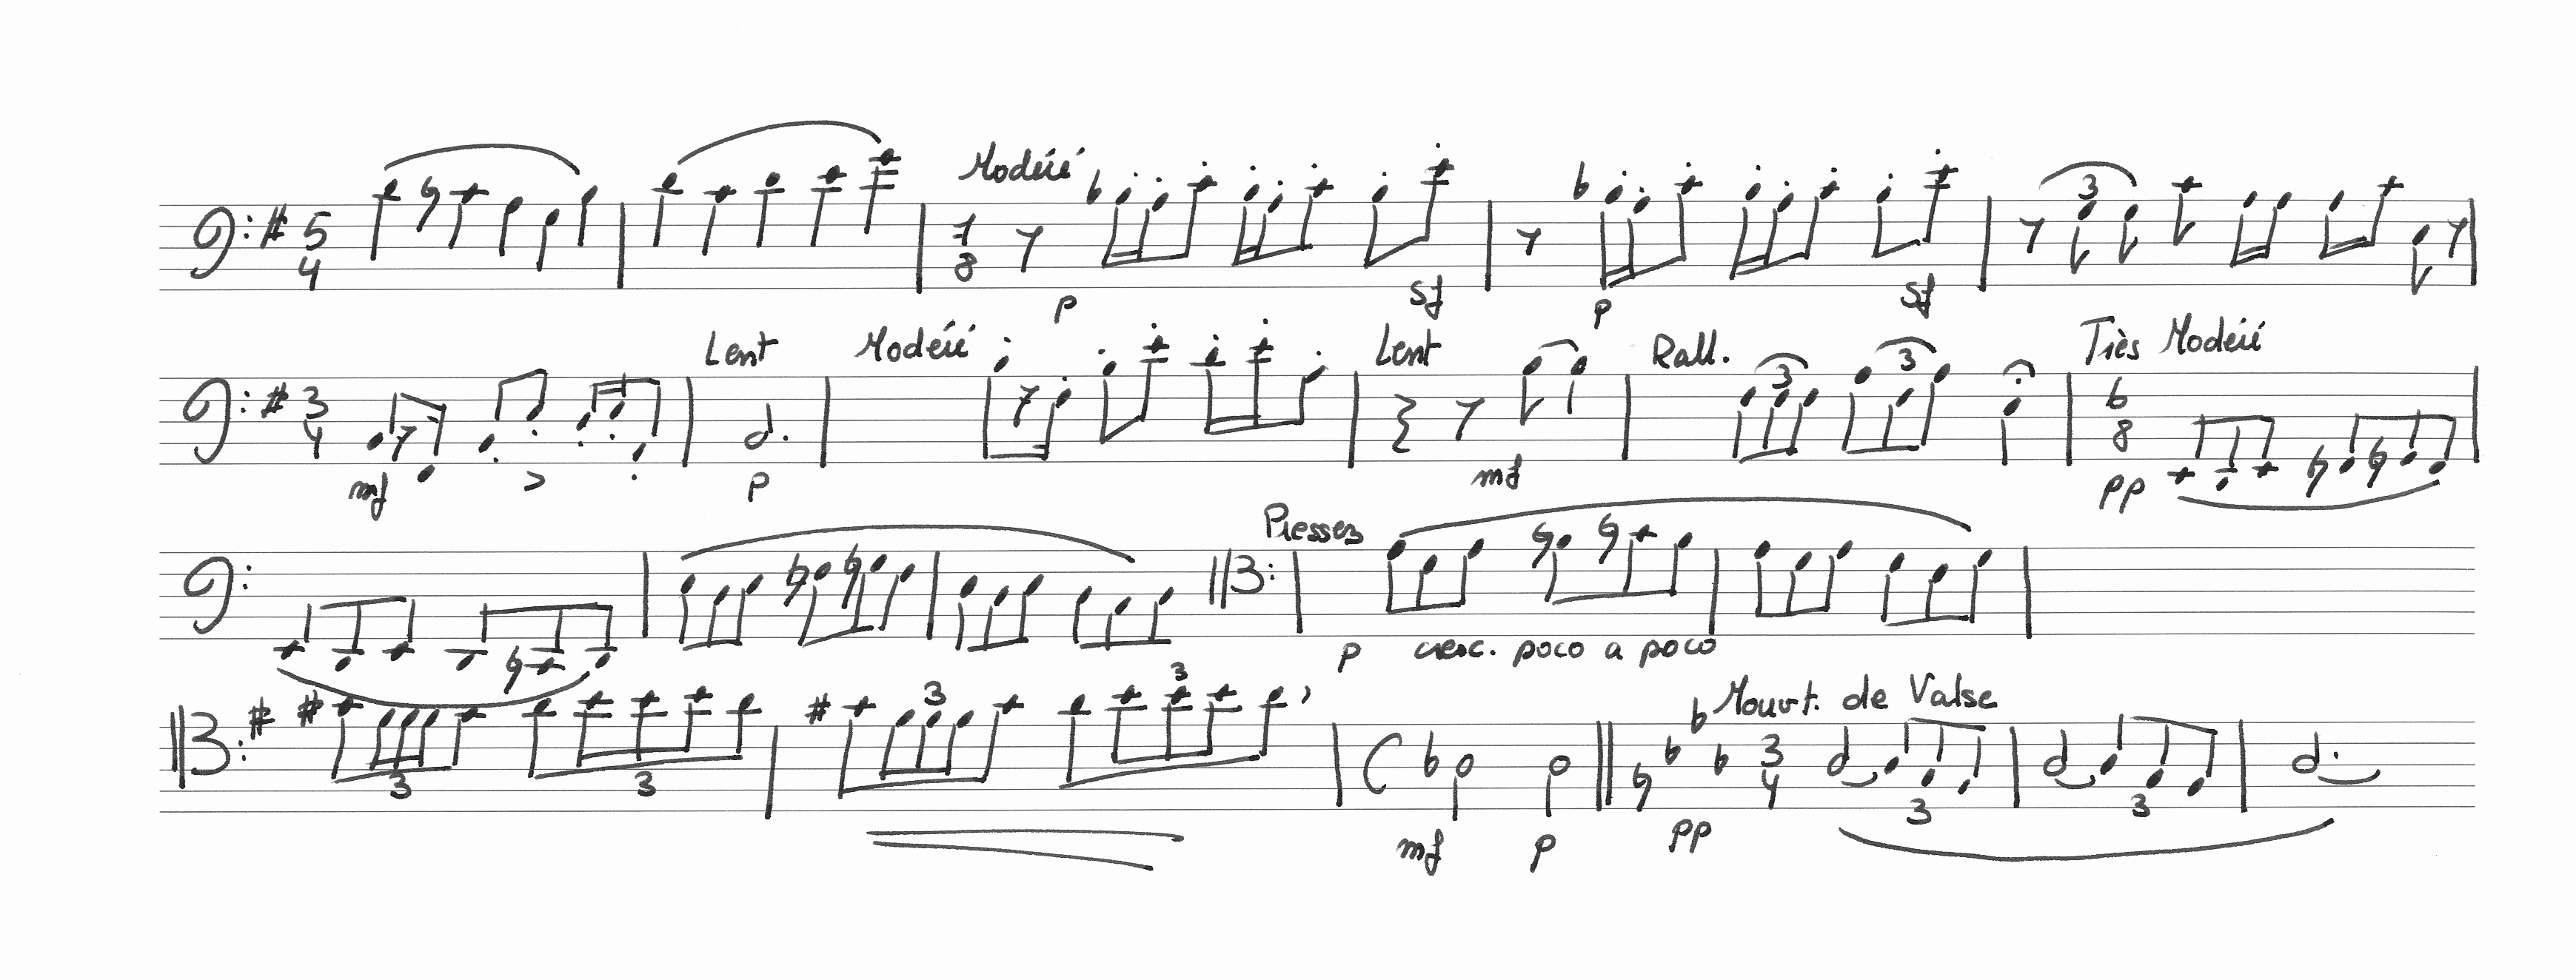 5 4 Modéré 7 8 p sf p sf 3
3 4 mf Lent p Modéré Lent mf Rall. 3 3 Très Modéré 6 8 pp
Pressez p cresc. poco a poco
3 3 3 3 mf p pp Mouvt. de Valse 3 4 3 3